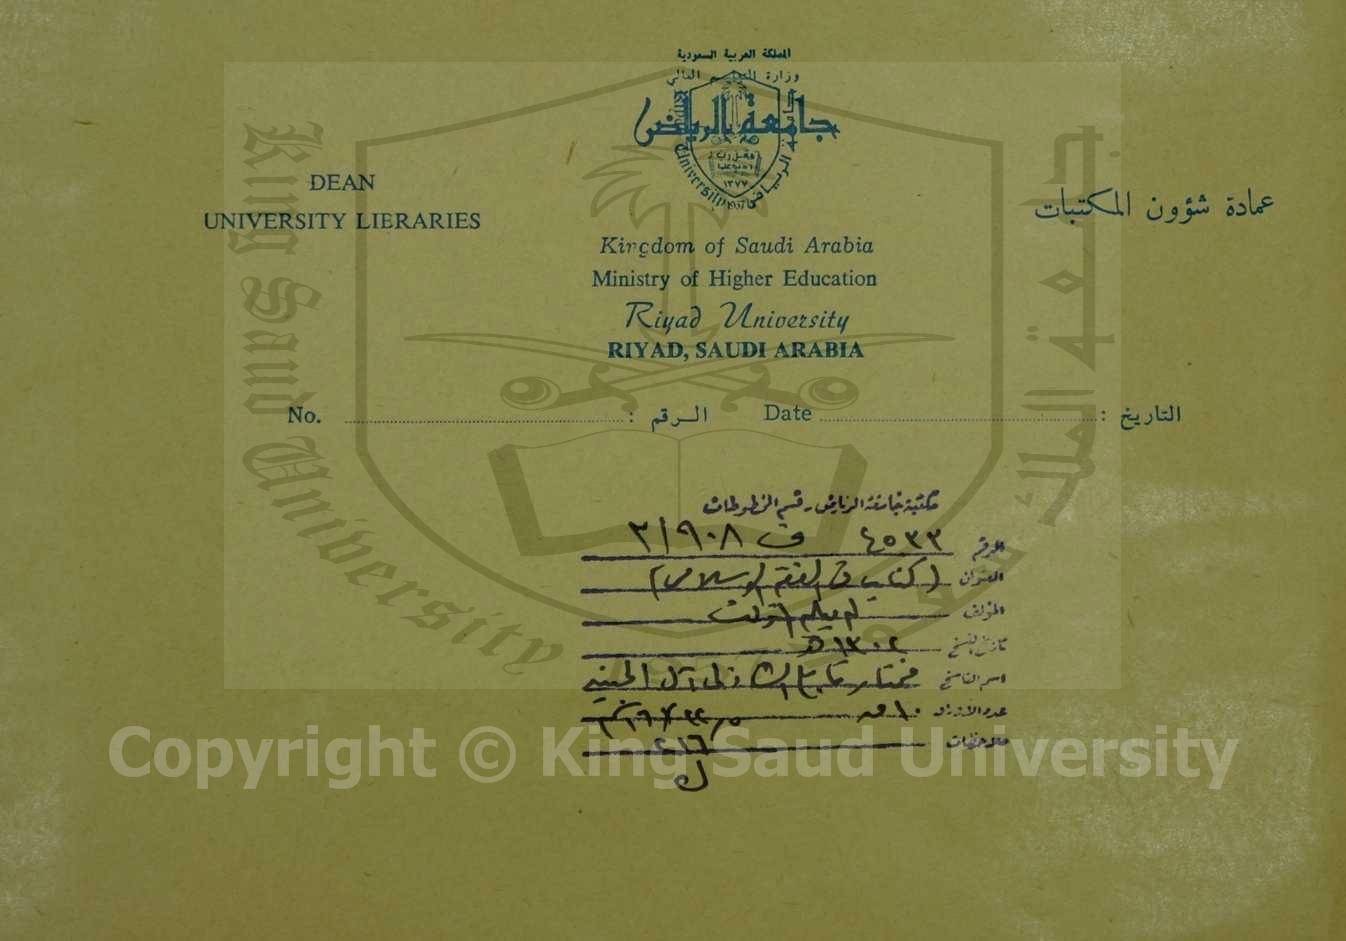 المملكة العربية السعودية
وزارة التعليم العالي
جامعة الرياض
١٣٧٧
University
DEAN
UNIVERSITY LIBRARIES
عمادة شؤون المكتبات
Kingdom of Saudi Arabia
Ministry of Higher Education
Riyad University
RIYAD, SAUDI ARABIA
No. : الرقم
Date : التاريخ
مكتبة جامعة الرياض - قسم المخطوطات
الرقم ٤٥٣٣ ف ٣/٩٠٨
العنوان (كتاب في الفقه الإسلامي)
المؤلف لم يعلم المؤلف
تاريخ النسخ ١٣٠٢ هـ
اسم الناسخ مختار
عدد الأوراق ١٠ ق
ملاحظات ٢١٦
King Saud University
جامعة الملك سعود
Copyright © King Saud University